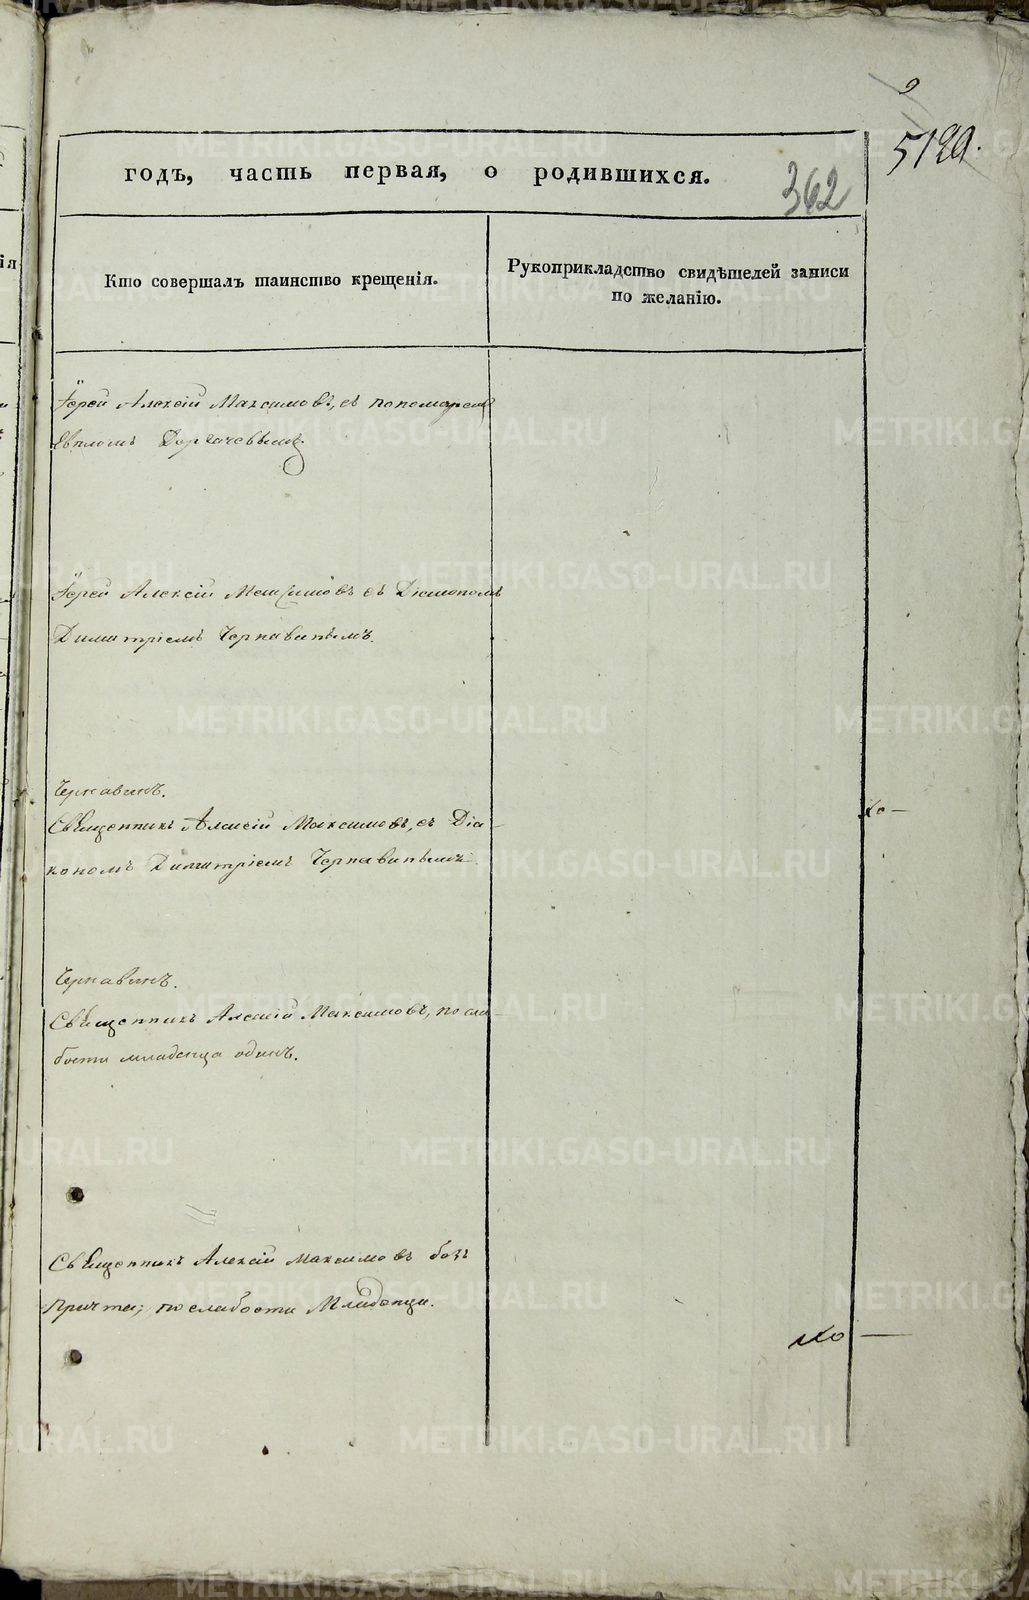 5129.
годъ, часть первая, о родившихся.
362
Кто совершалъ таинство крещенія.
Рукоприкладство свидѣтелей записи
по желанію.
Іерей Алексій Максимовъ, съ пономаремъ
Евпломъ
Іерей Алексій Максимовъ съ Діакономъ
Димитріемъ Чернавинымъ.
Чернавинъ.
Священникъ Алексій Максимовъ, съ Діа-
кономъ Димитріемъ Чернавинымъ
Чернавинъ.
Священникъ Алексій Максимовъ, по сла-
бости младенца одинъ.
Священникъ Алексій Максимовъ безъ
Причта, по слабости Младенца.
METRIKI.GASO-URAL.RU